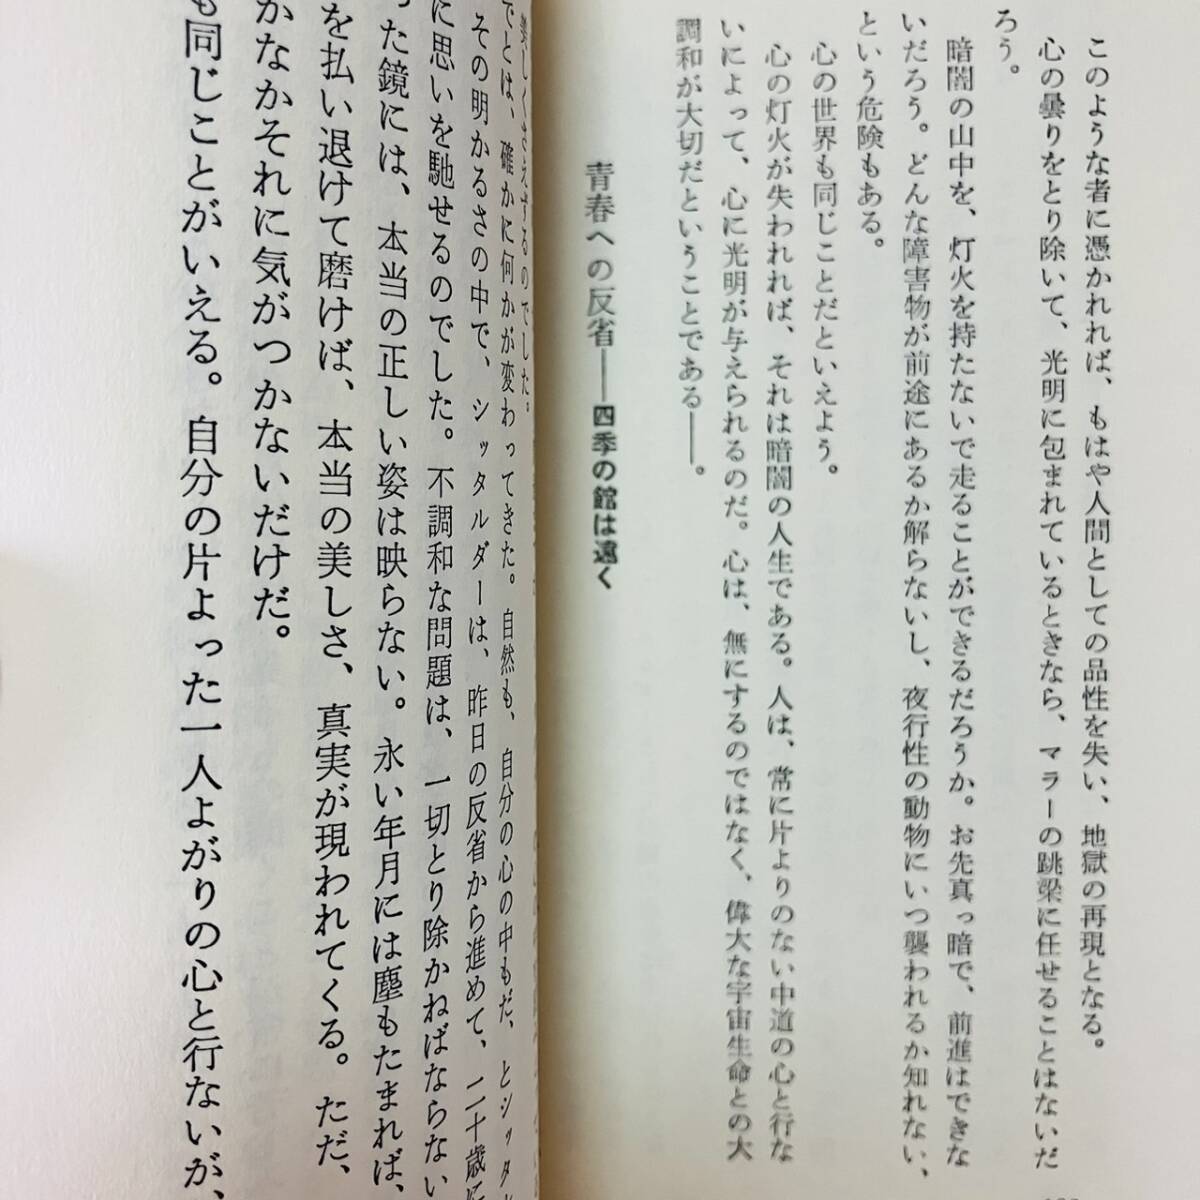 このような者に憑かれれば、もはや人間としての品性を失い、地獄の再現となる。
心の曇りをとり除いて、光明に包まれているときなら、マラーの跳梁に任せることはないだ
ろう。
暗闇の山中を、灯火を持たないで走ることができるだろうか。お先真っ暗で、前進はできな
いだろう。どんな障害物が前途にあるか解らないし、夜行性の動物にいつ襲われるか知れない、
という危険もある。
心の世界も同じことだといえよう。
心の灯火が失われれば、それは暗闇の人生である。人は、常に片よりのない中道の心と行な
いによって、心に光明が与えられるのだ。心は、無にするのではなく、偉大な宇宙生命との大
調和が大切だということである――。
青春への反省――四季の館は遠く
美しくさえずるのでした。
でとは、確かに何かが変わってきた。自然も、自分の心の中もだ、とシッタ
その明かるさの中で、シッタルダーは、昨日の反省から進めて、二十歳に
に思いを馳せるのでした。不調和な問題は、一切とり除かねばならない
った鏡には、本当の正しい姿は映らない。永い年月には塵もたまれば、
を払い退けて磨けば、本当の美しさ、真実が現われてくる。ただ、
かなかそれに気がつかないだけだ。
も同じことがいえる。自分の片よった一人よがりの心と行ないが、